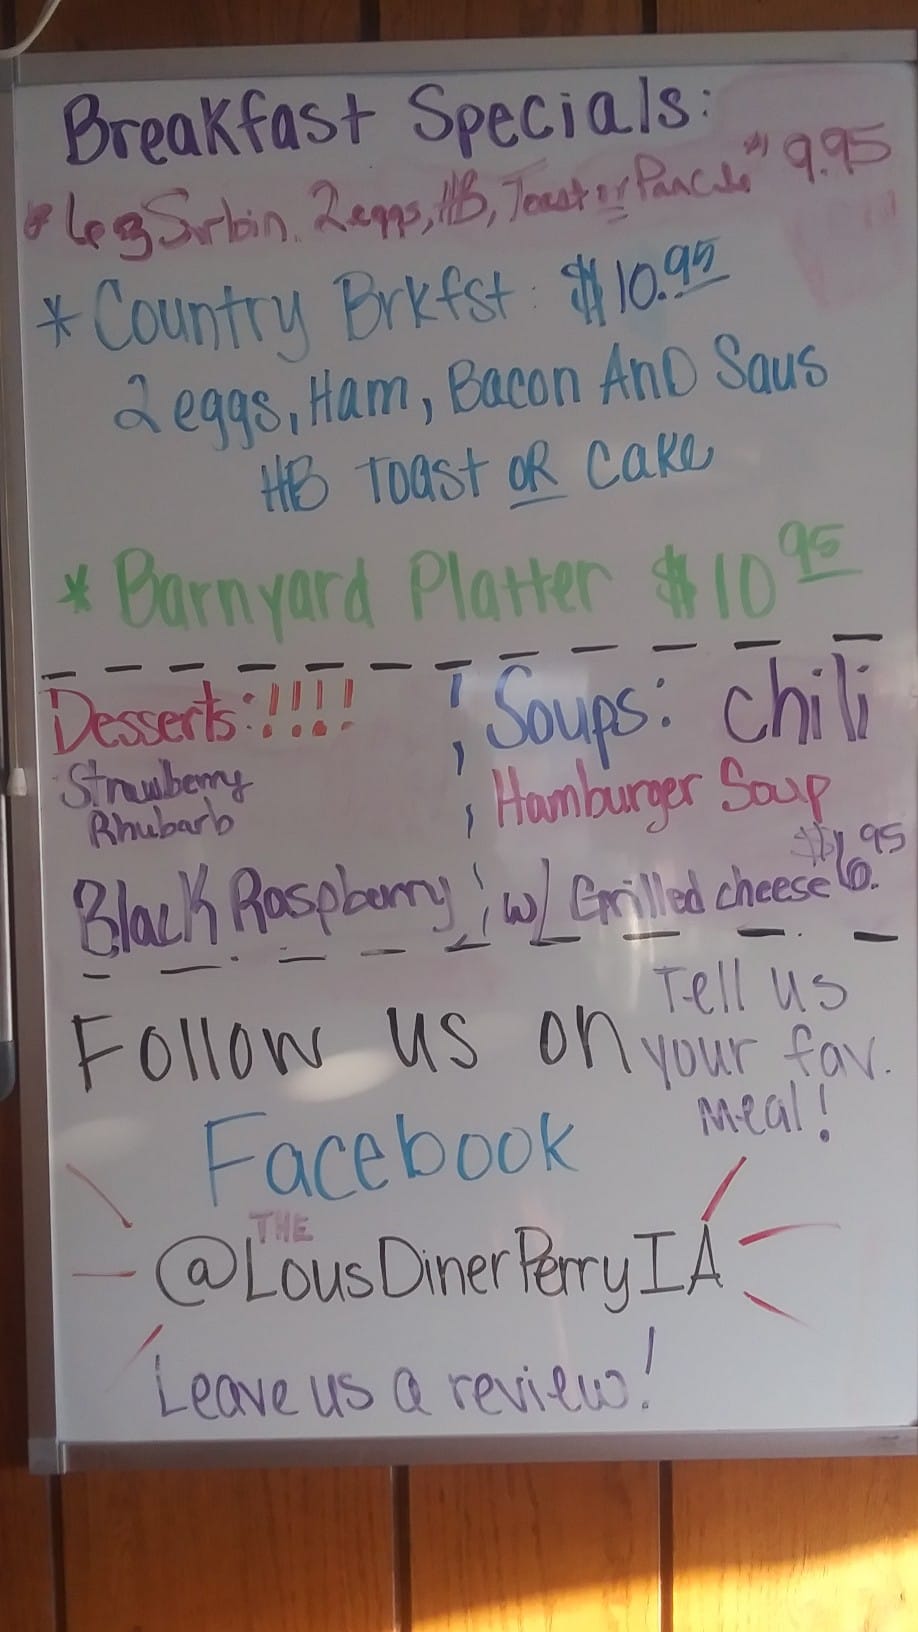 Breakfast Specials:
* 6oz Surloin. 2 eggs, HB, Toast or Pancake $ 9.95
* Country Brkfst: $10.95
2 eggs, Ham, Bacon AND Saus
HB Toast OR Cake
* Barnyard Platter $10 95
Desserts:!!!!
Strawberry
Rhubarb
Black Raspberry
Soups: Chili
Hamburger Soup
w/ Grilled cheese $6.95
Follow us on
Facebook
Tell us
your fav.
meal!
THE
@LousDinerPerryIA
Leave us a review!